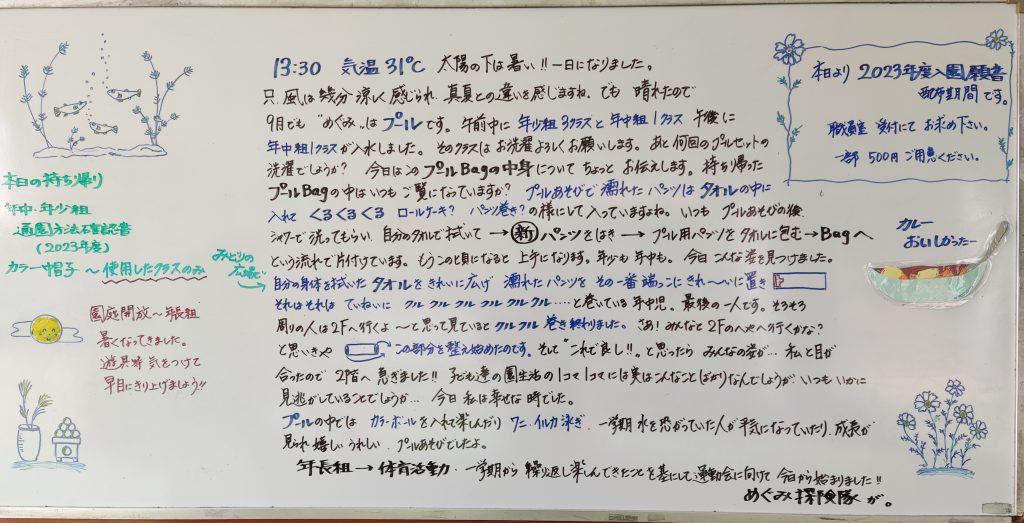 13:30 気温 31℃ 太陽の下は暑い!! 一日になりました。
只、風は幾分 涼しく感じられ、真夏との違いを感じますね、でも 晴れたので
9月でも "めぐみ"は プールです。午前中に 年少組 3クラスと 年中組 1クラス 午後に
年中組1クラスが入水しました。そのクラスは お洗濯よろしくお願いします。あと何回のプールセットの
洗濯でしょうか? 今日はこの プールBagの中身について ちょっと お伝えします。持ち帰った
プールBagの中は いつも ご覧になっていますか? プールあそびで 濡れた パンツは タオルの中に
入れて くるくるくる ロールケーキ? パンツ巻き?の様にして 入っていますよね。いつも プールあそびの後、
シャワーで洗ってもらい、自分のタオルで拭いて → 新 パンツをはき → プール用パンツを タオルに包む → Bagへ
という流れで 片付けています。もうこの頃になると 上手になります。年少も 年中も。今日 こんな姿を見つけました。
自分の身体を拭いた タオルを きれいに広げ 濡れたパンツを その一番端っこに きれ〜いに置き
それはそれは ていねいに クル クル クル クル クル クル‥‥と巻いている 年中児。最後の一人です。そろそろ
周りの人は 2Fへ行くよ 〜と思って見ていると クル クル 巻き終わりました。さあ! みんなと 2Fのへやへ行くかな?
と思いきや この部分を整え始めたのです。そして "これで良し!!"。と思ったら みんなの姿が… 私と目が
合ったので 2階へ 急ぎました!! 子ども達の園生活の 1コマ 1コマには 実は こんなこと ばかりなんでしょうが、いつも いかに
見逃がしていることでしょうか… 今日 私は幸せな時でした。
プールの中では カラーボールを入れて楽しんだり ワニ・イルカ泳ぎ、一学期 水を恐がっていた人が 平気になっていたり、成長が
見られ 嬉しい うれしい プールあそびでしたよ。
年長組 → 体育活動、一学期から 繰り返し 楽しんできたことを基にして 運動会に向けて 今日から始まりました!!
めぐみ探険隊 が。
本日の持ち帰り
年中・年少組
通園方法確認書
(2023年度)
カラー帽子 〜 使用したクラスのみ
みどりの
広場で
園庭開放 〜 年長組
暑くなってきました。
遊具等 気をつけて
早目に きり上げましょう!!
本日より 2023年度入園願書
配布期間です。
職員室 受付にて お求め下さい。
一部 500円 ご用意ください。
カレー
おいしかったー